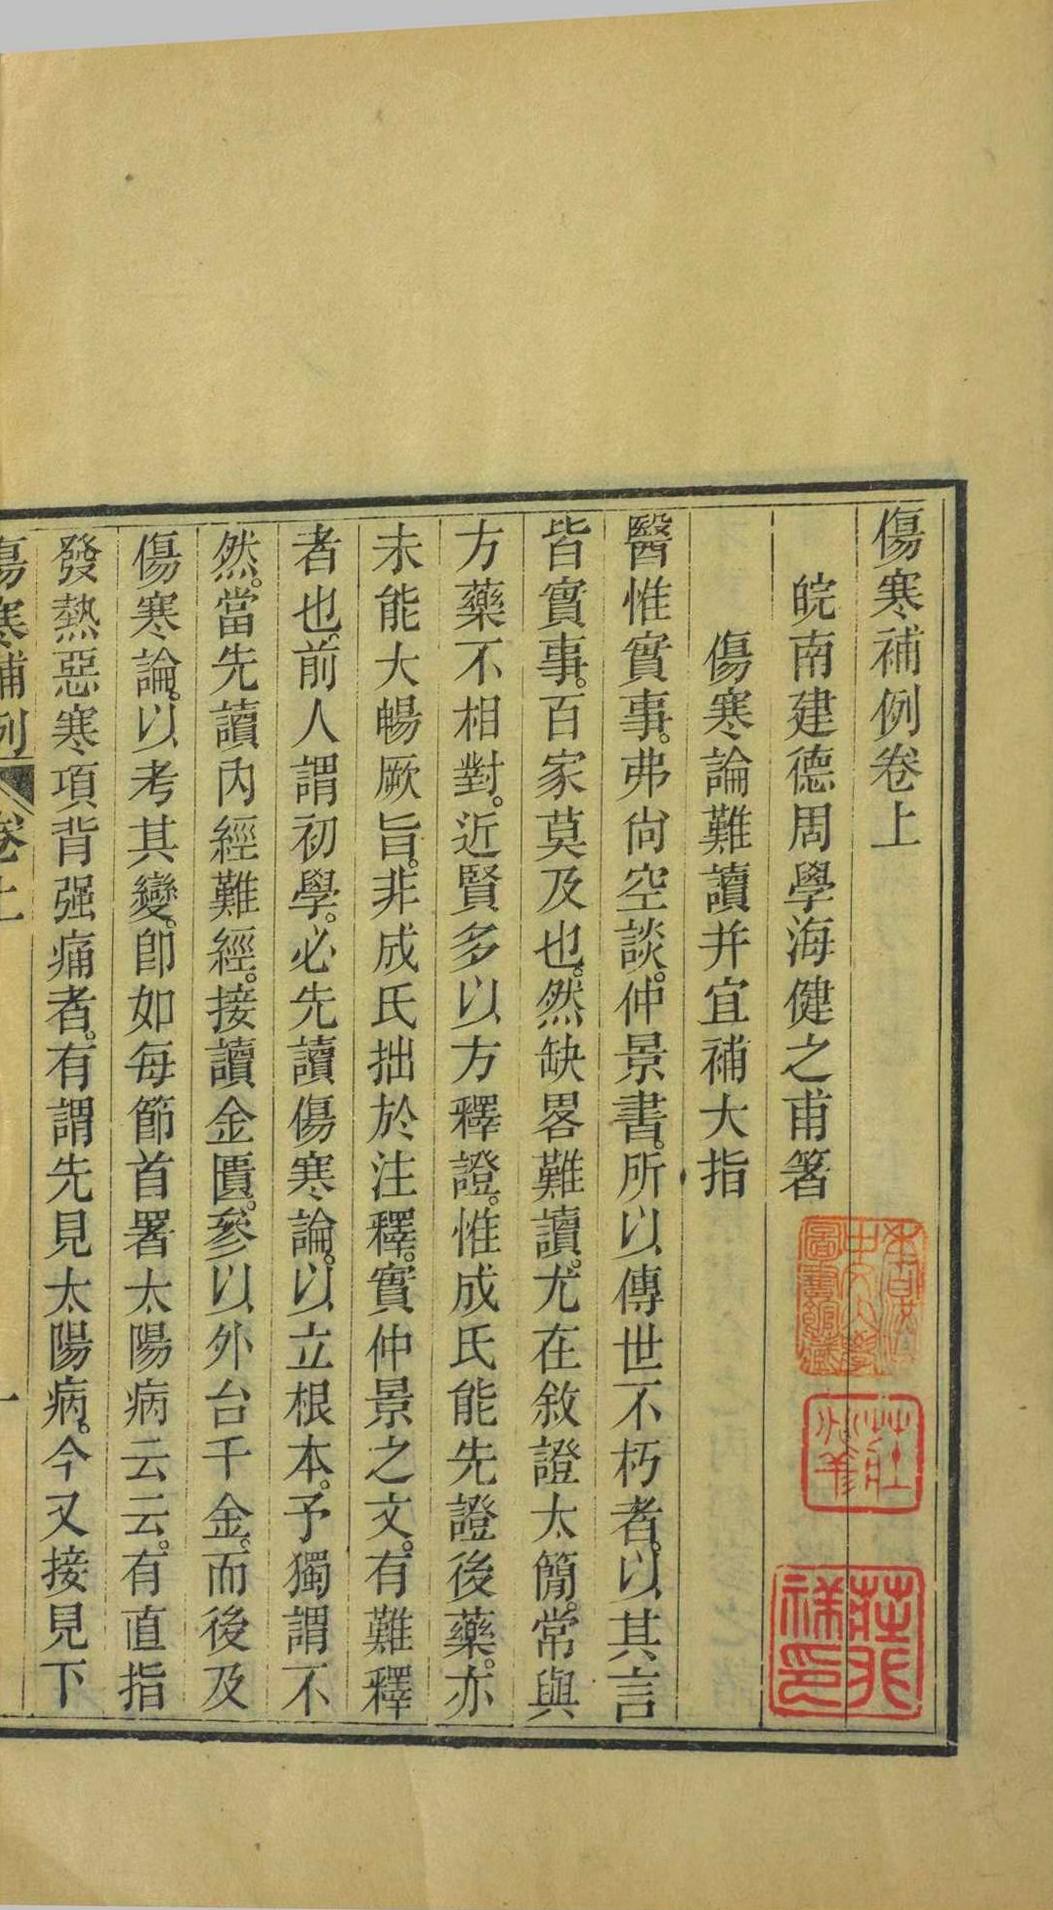 傷寒補例卷上
皖南建德周學海健之甫箸
傷寒論難讀并宜補大指
醫惟實事。弗尙空談。仲景書。所以傳世不朽者。以其言
皆實事。百家莫及也。然缺畧難讀。尤在敘證太簡。常與
方藥不相對。近賢多以方釋證。惟成氏能先證後藥。亦
未能大暢厥旨。非成氏拙於注釋。實仲景之文。有難釋
者也。前人謂初學。必先讀傷寒論。以立根本。予獨謂不
然。當先讀內經難經。接讀金匱。參以外台千金。而後及
傷寒論。以考其變。卽如每節首署太陽病云云。有直指
發熱惡寒項背强痛者。有謂先見太陽病。今又接見下
傷寒補例 卷上 一
莊兆祥印